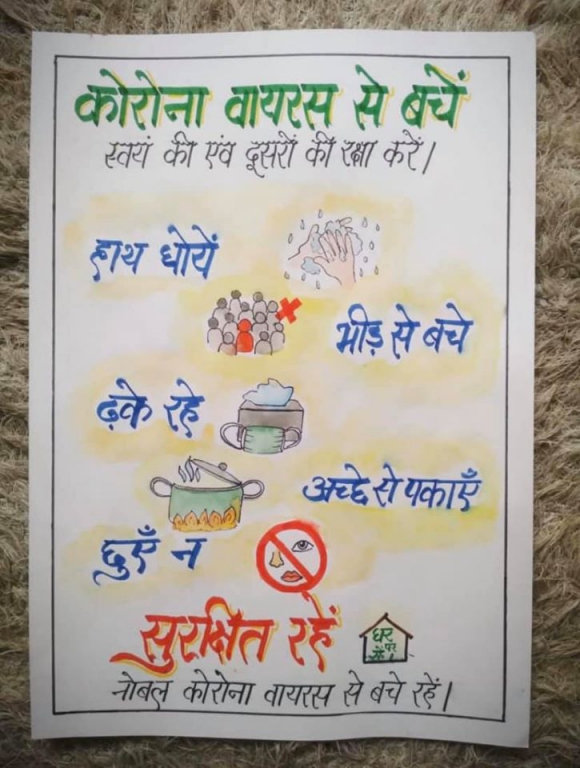 कोरोना वायरस से बचें
स्वयं की एंव दूसरों की रक्षा करें।
हाथ धोयें
भीड़ से बचे
ढ़के रहे
अच्छे से पकाएँ
छुएँ न
सुरक्षित रहें
घर पर
रहें!
नोबल कोरोना वायरस से बचे रहें।